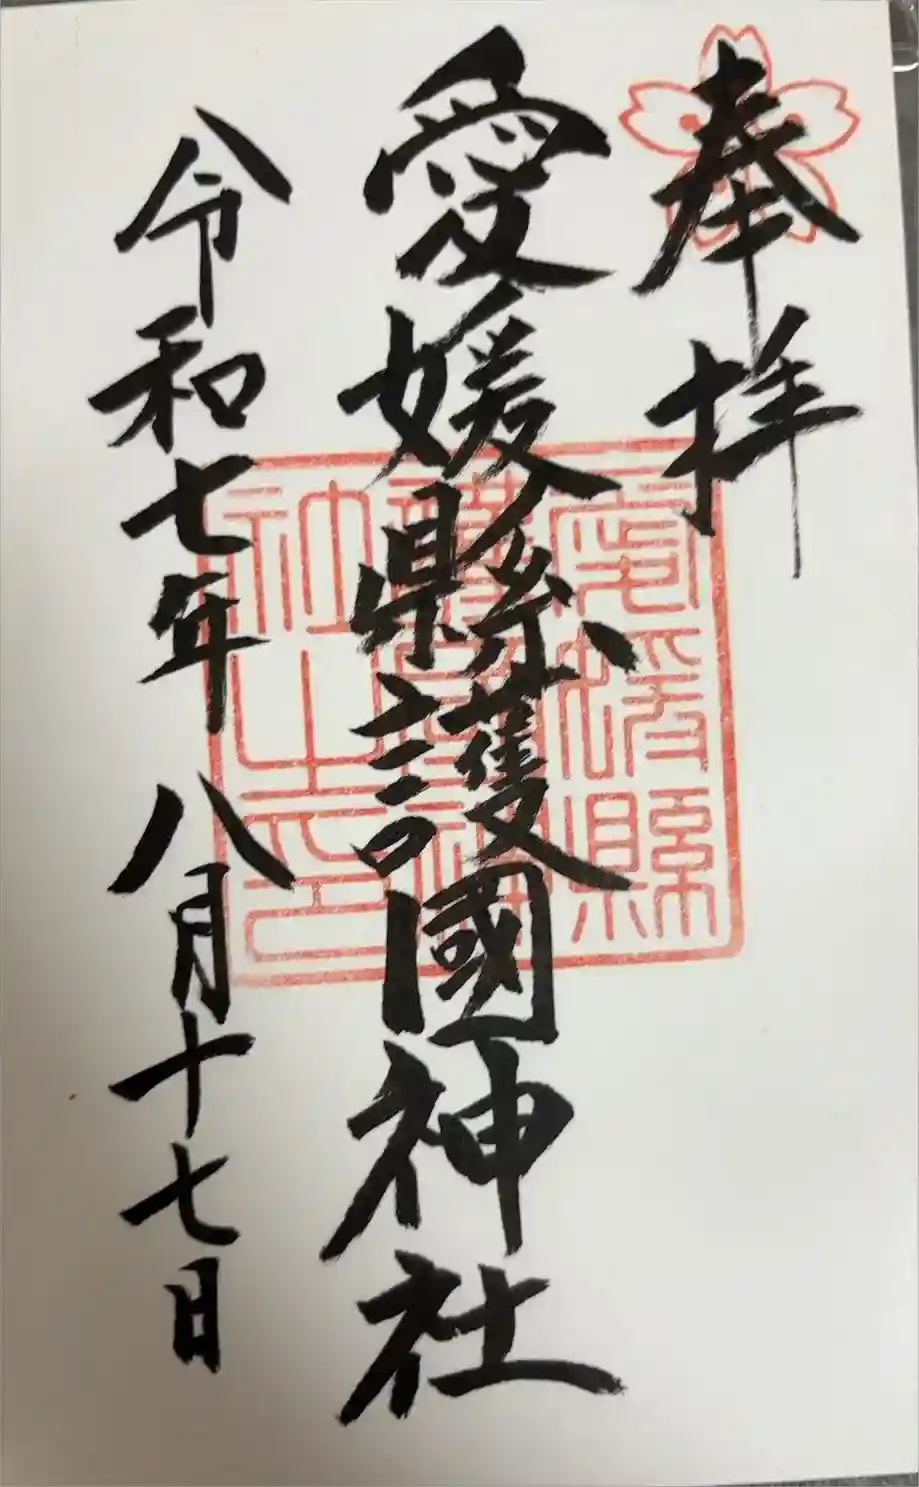 奉拝
愛媛縣護國神社
令和七年 八月十七日
愛媛縣
護國神
社之印